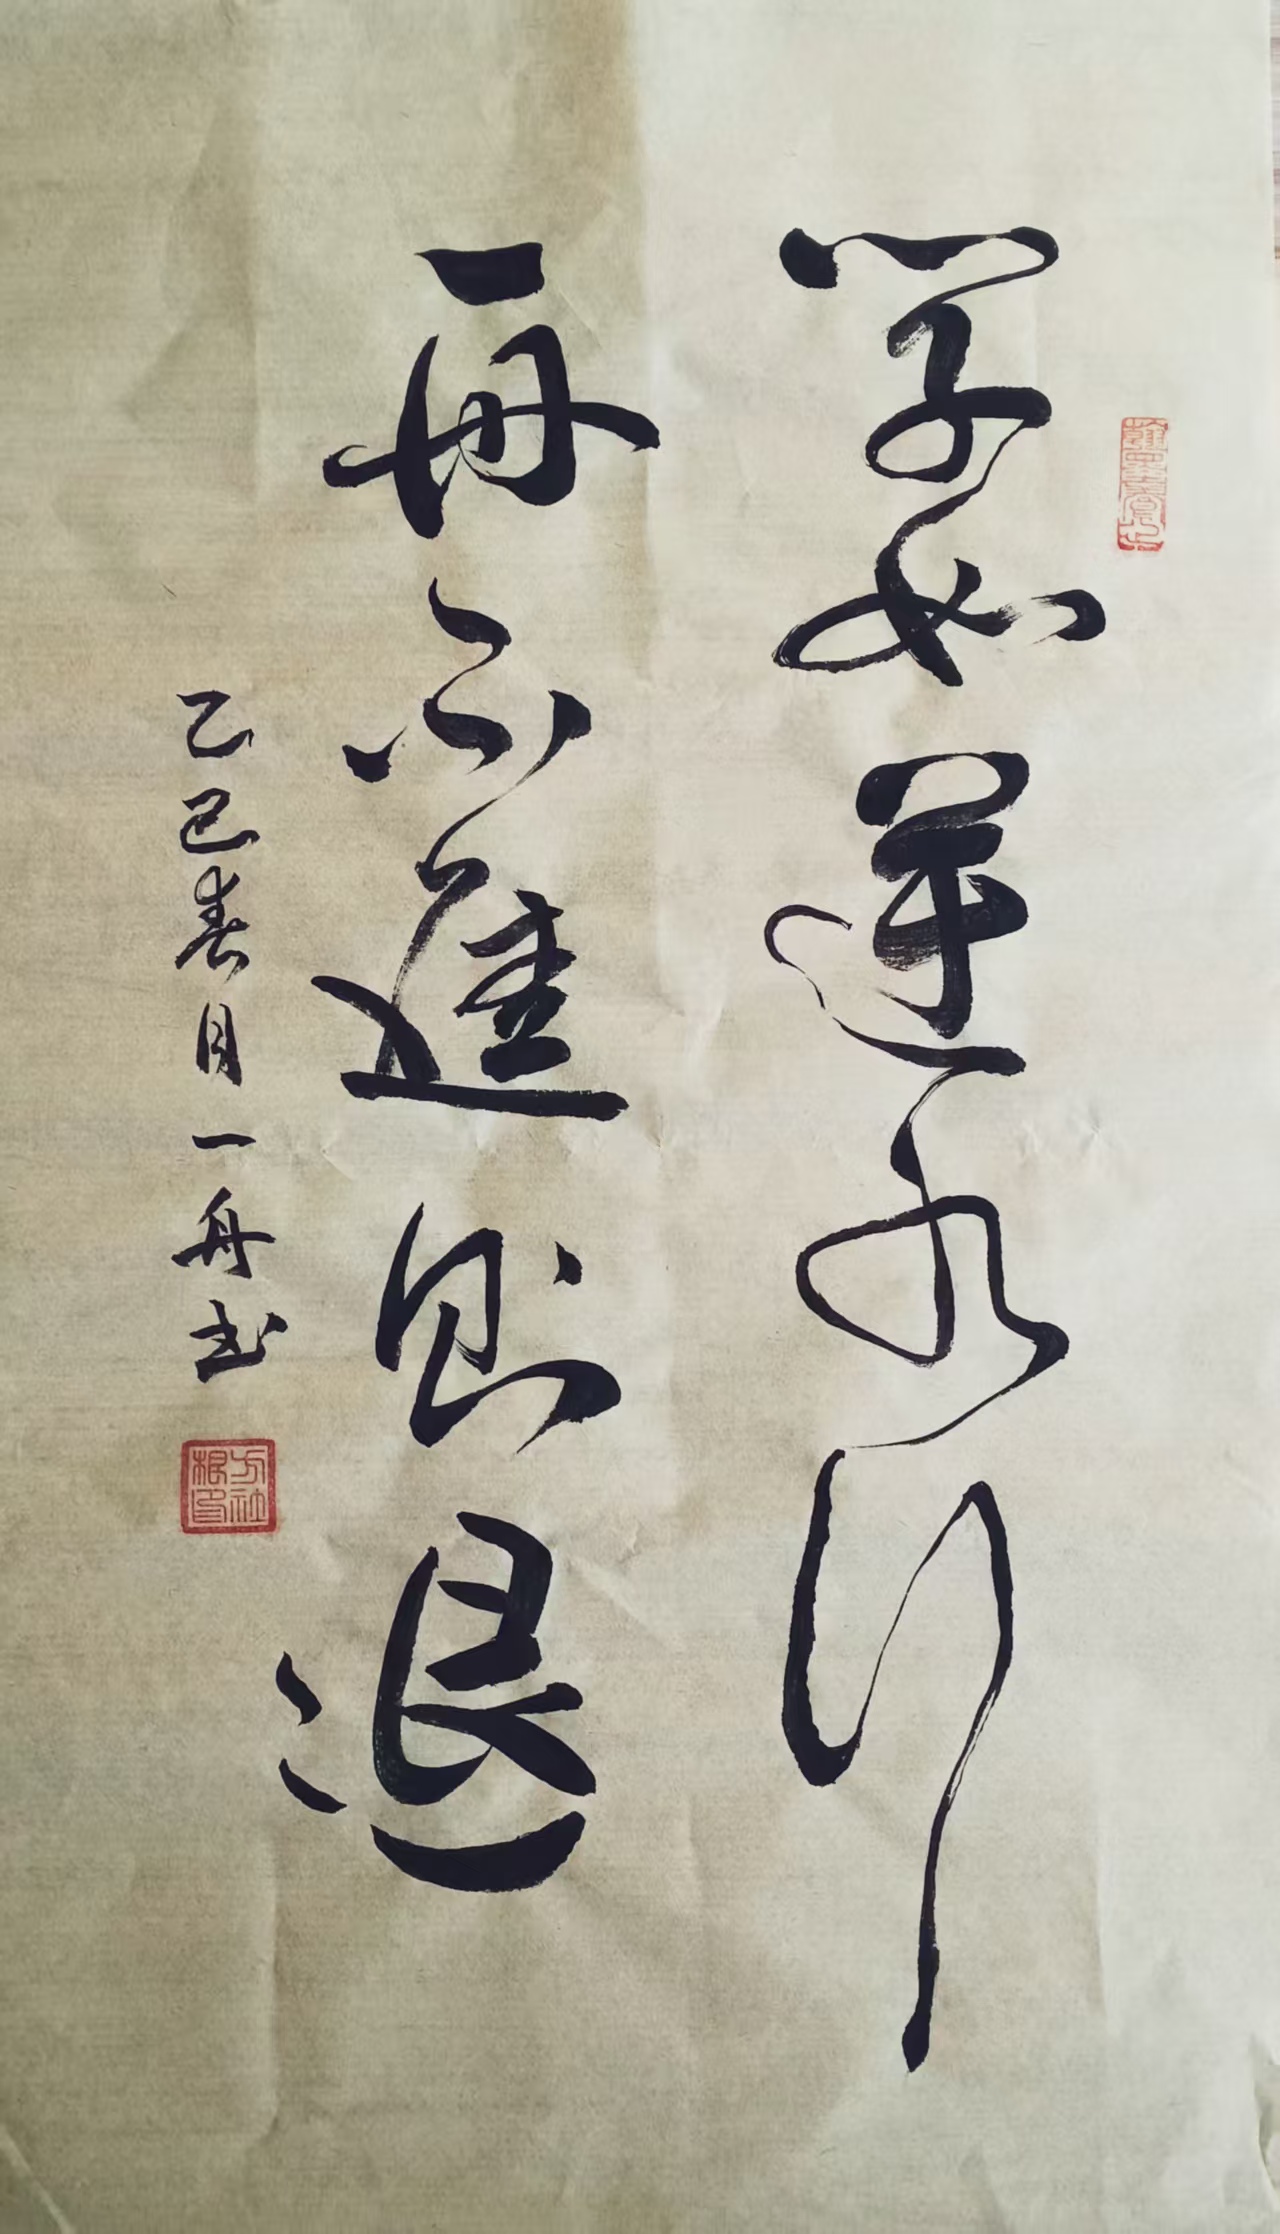 学如逆水行
舟不進則退
乙巳春月一舟书